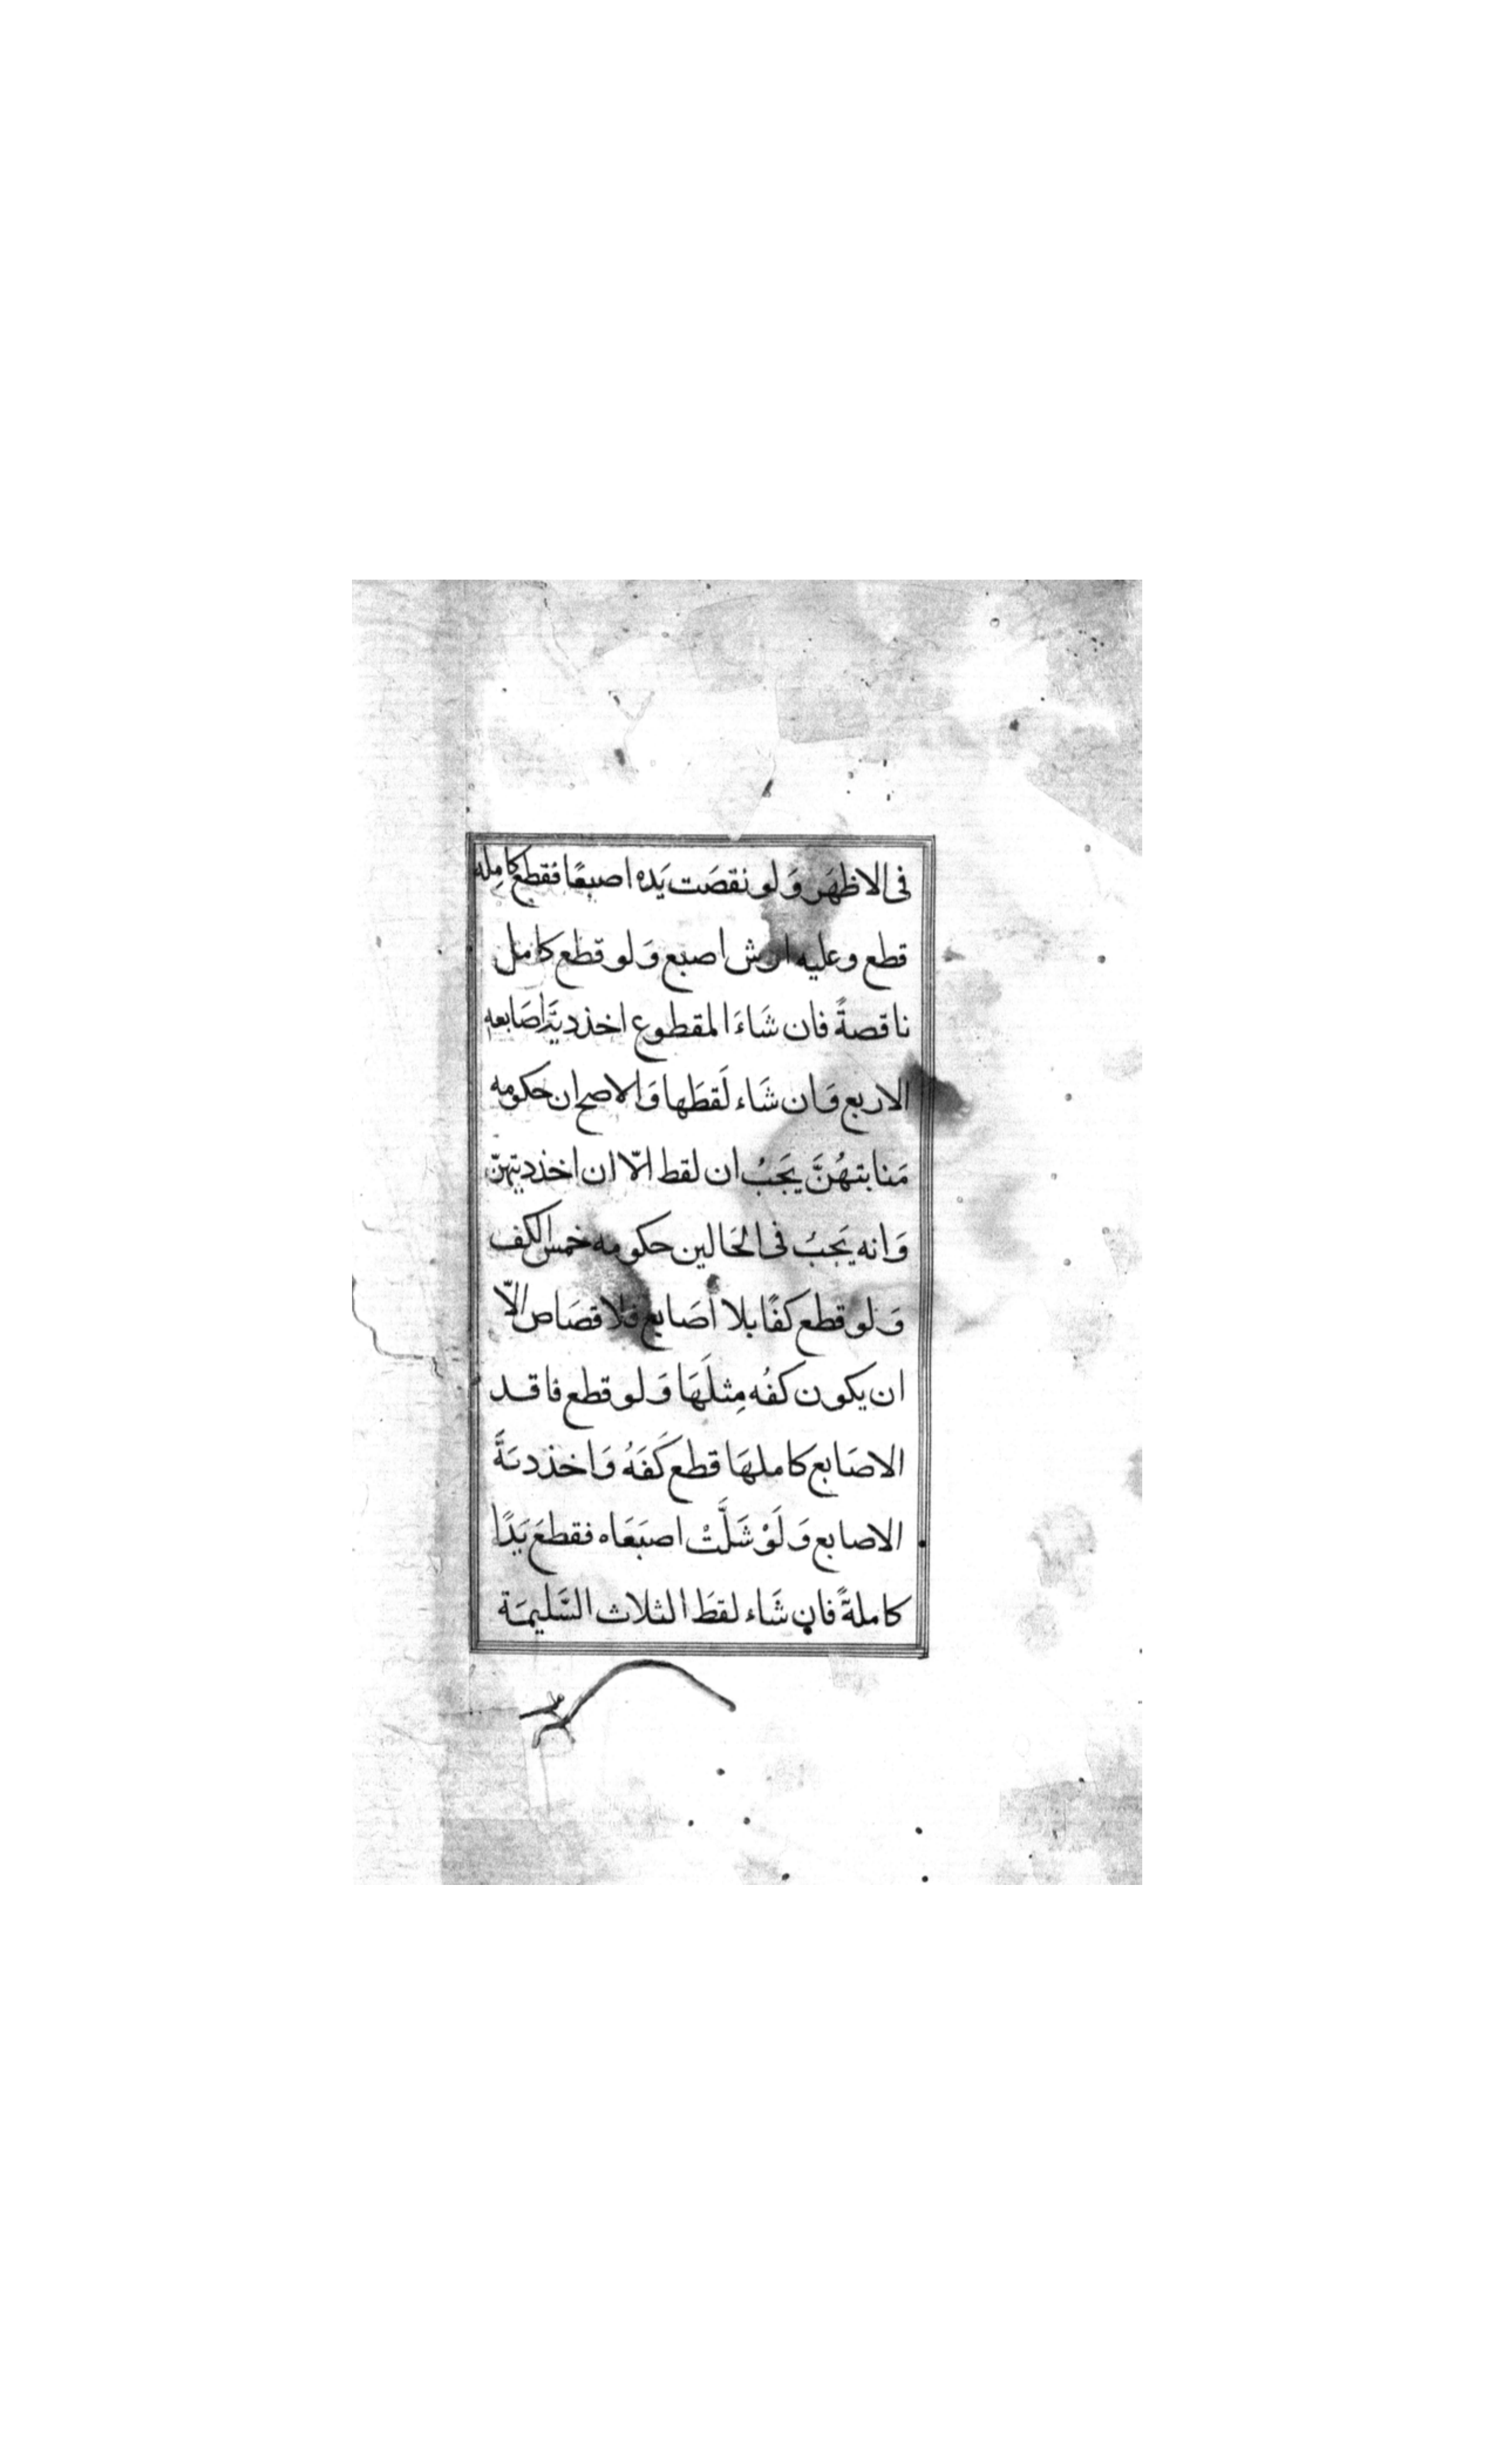 فى الاظهَر وَلو نقصَت يَده اصبعًا فقطع كامِله
قطع وعليه ارش اصبع وَلو قطع كامل
ناقصةً فان شَاءَ المقطوع اخذ ديَّة اصَابعه
الاربع وَان شَاء لَقطَها وَالاصح ان حكومه
مَنابتهُنَّ يَجَبُ ان لقط الّا ان اخذ ديتهنّ
وَانه يَجبُ فى الحَالين حكومه خمس الكف
وَلو قطع كفًا بلا اصَابع فلا قصَاص الّا
ان يكون كفُه مِثلَهَا وَلو قطع فاقد
الاصَابع كاملهَا قطع كَفَهُ وَاخذ ديَةَ
الاصابع وَلَوْ شَلَّتْ اصبَعَاه فقطعَ يَدًا
كاملةً فان شَاء لقطَ الثلاث السَّليمَة